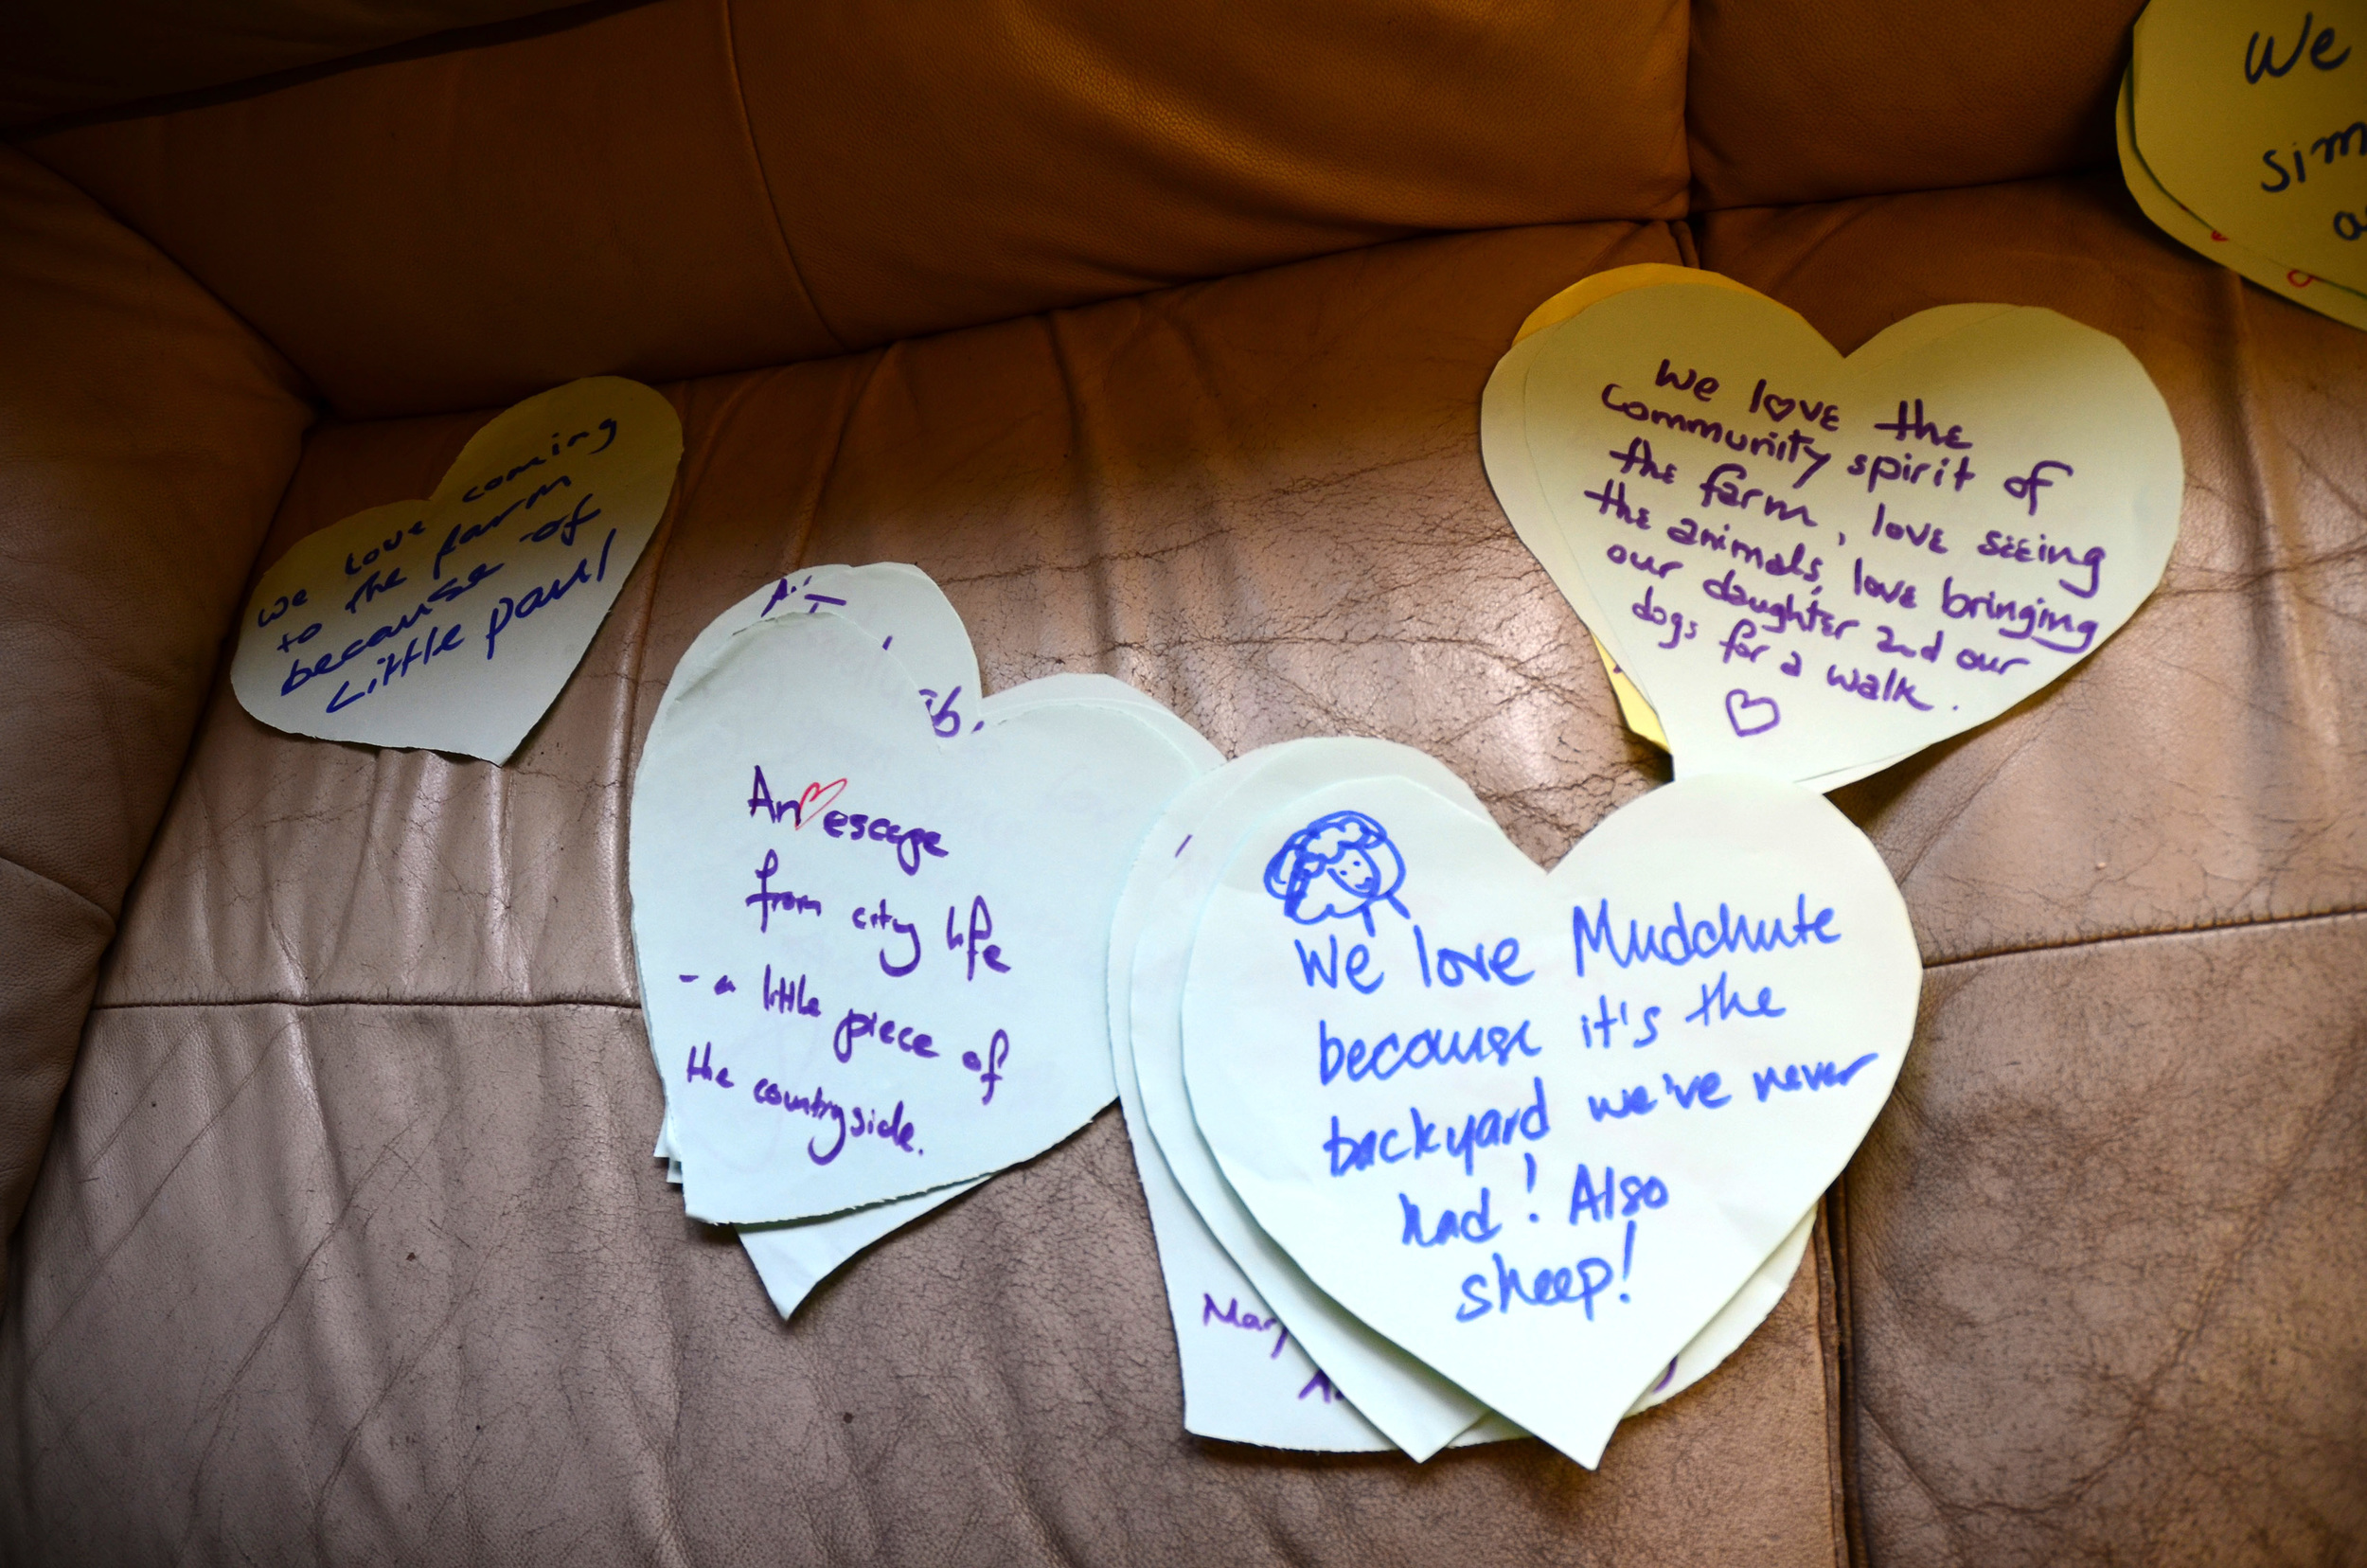 we love coming
to the farm
because of
Little paul
An escape
from city life
- a little piece of
the countryside.
We love the
community spirit of
the farm, love seeing
the animals, love bringing
our daughter and our
dogs for a walk.
We love Mudchute
because it's the
backyard we've never
had! Also
sheep!
We